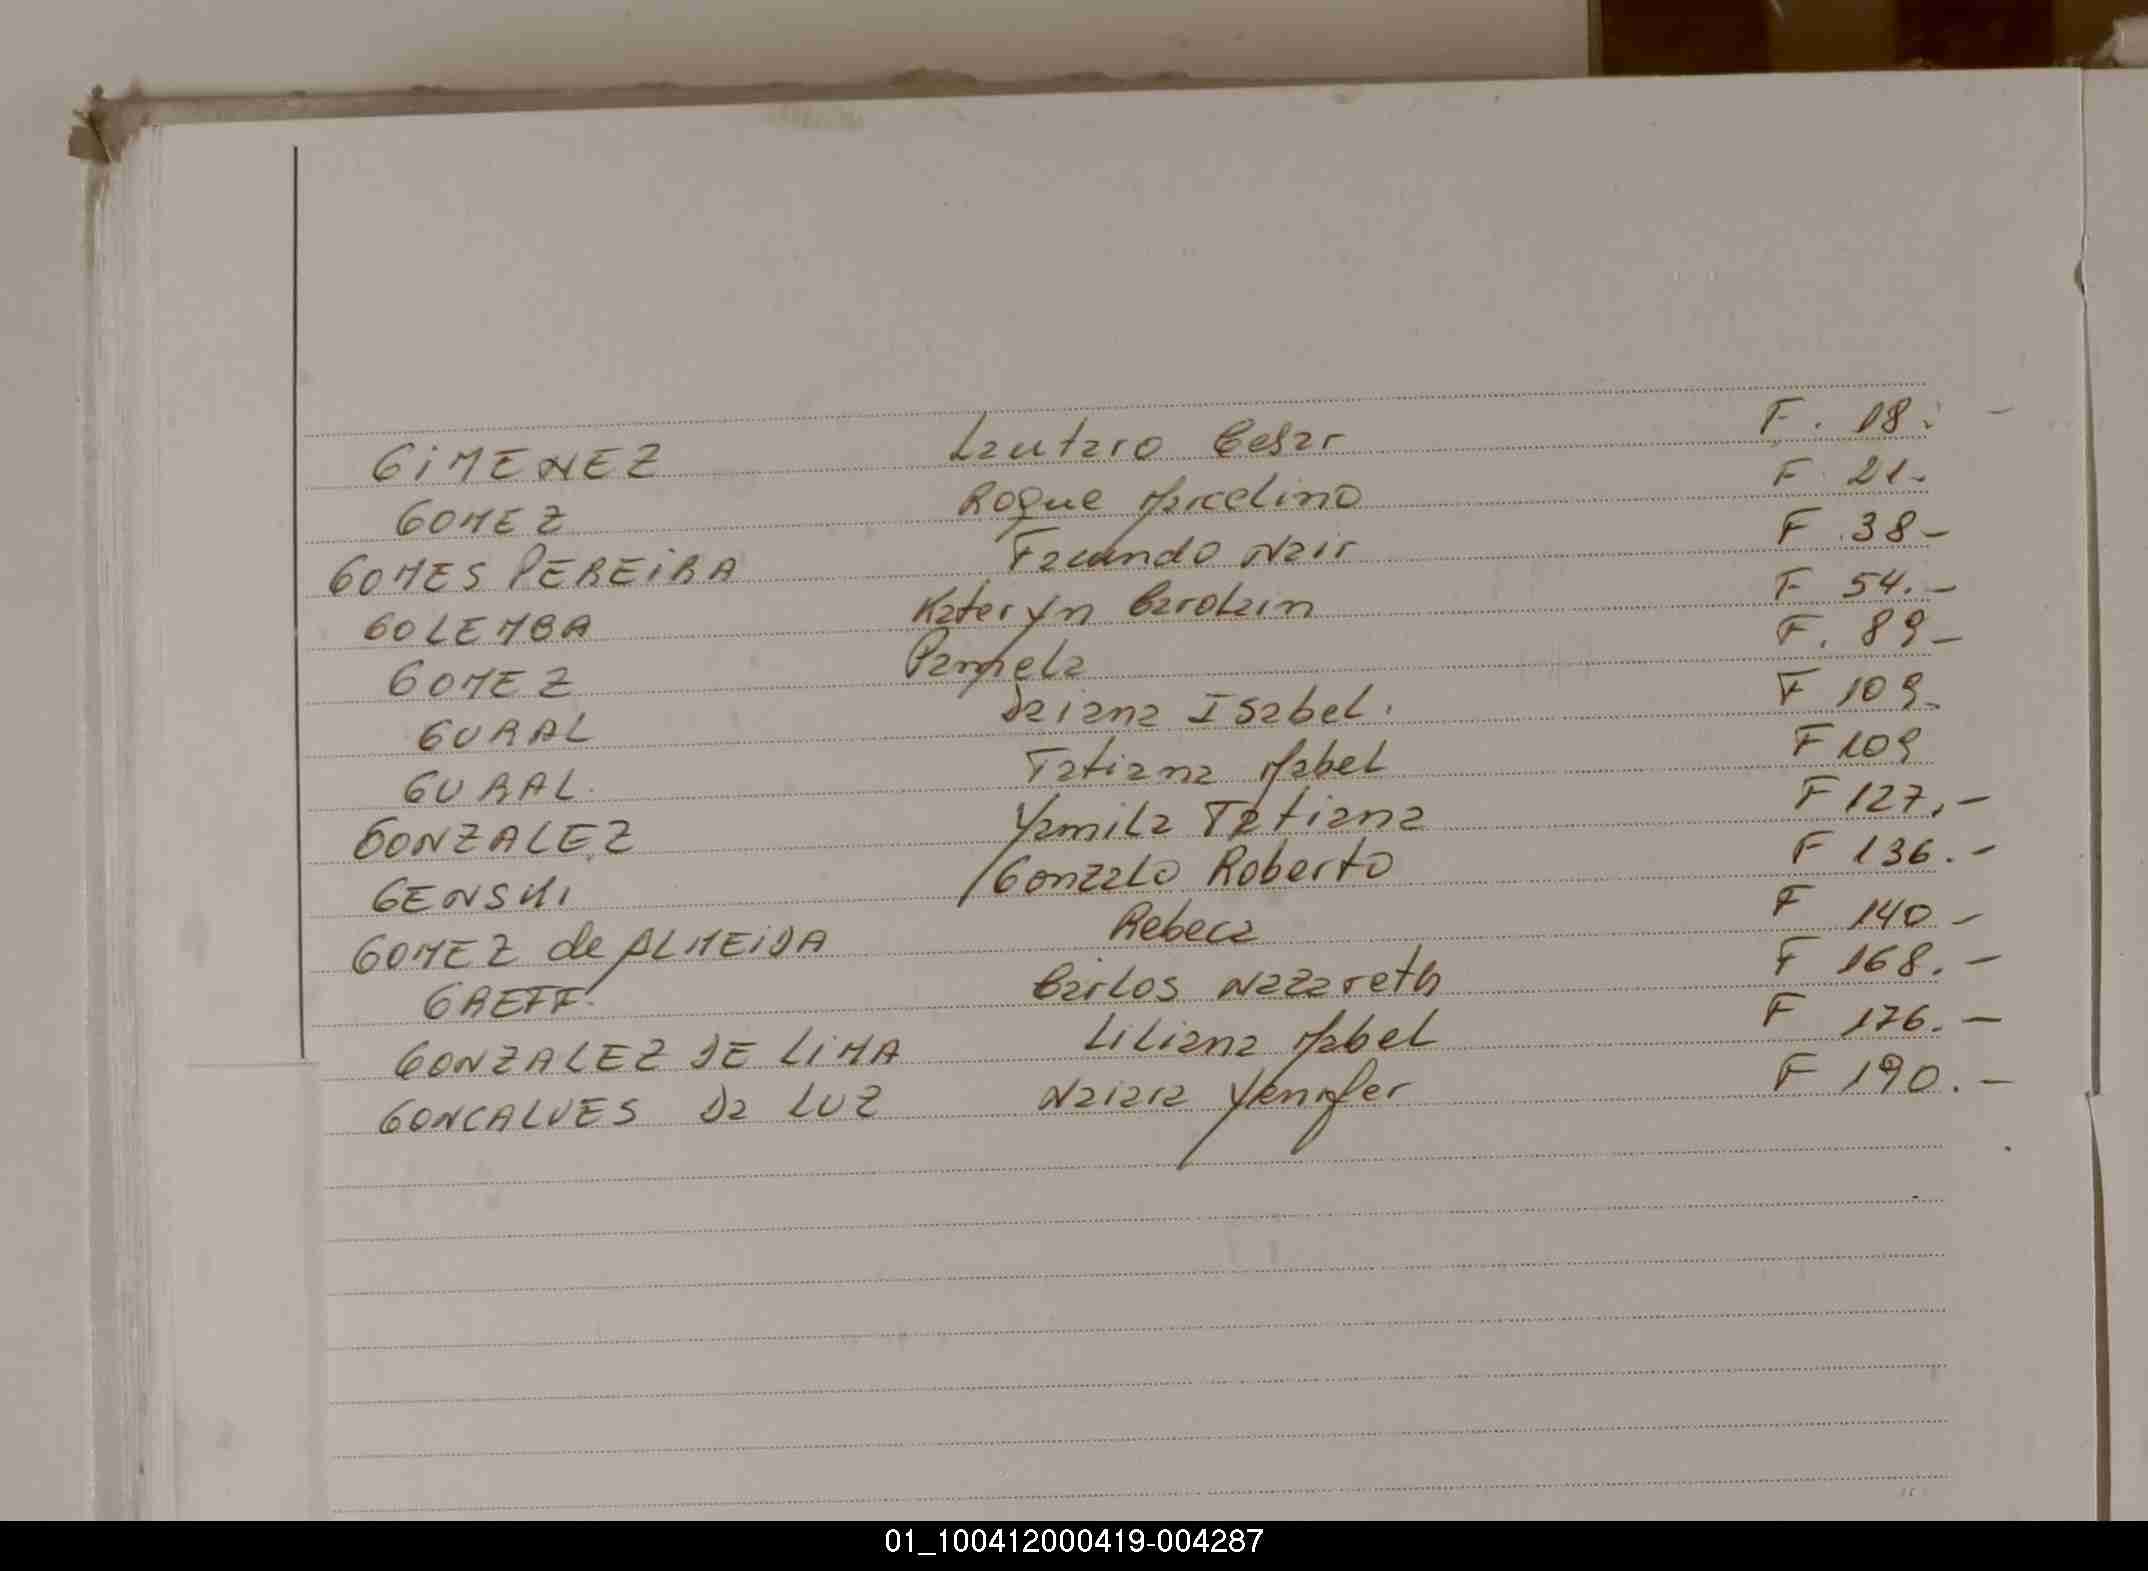 GiMENEZ Lautaro Cesar F. 18.
GOMEZ Roque Marcelino F 21-
GOMES PEREiRA Facundo Nair F 38-
GOLEMBA Kateryn Carolain F 54.-
GOMEZ Pamela F. 89-
GURAL Daiana Isabel. F 109-
GURAL. Tatiana Mabel F 109
GONZALEZ Yamila Tatiana F 127,-
GENSKi Gonzalo Roberto F 136.-
GOMEZ de ALMEiDA Rebeca F 140-
GREFF. Carlos Nazareth F 168.-
GONZALEZ DE LiMA Liliana Mabel F 176.-
GONCALVES Da LUZ Naiara Yennifer F 190.-
01_100412000419-004287